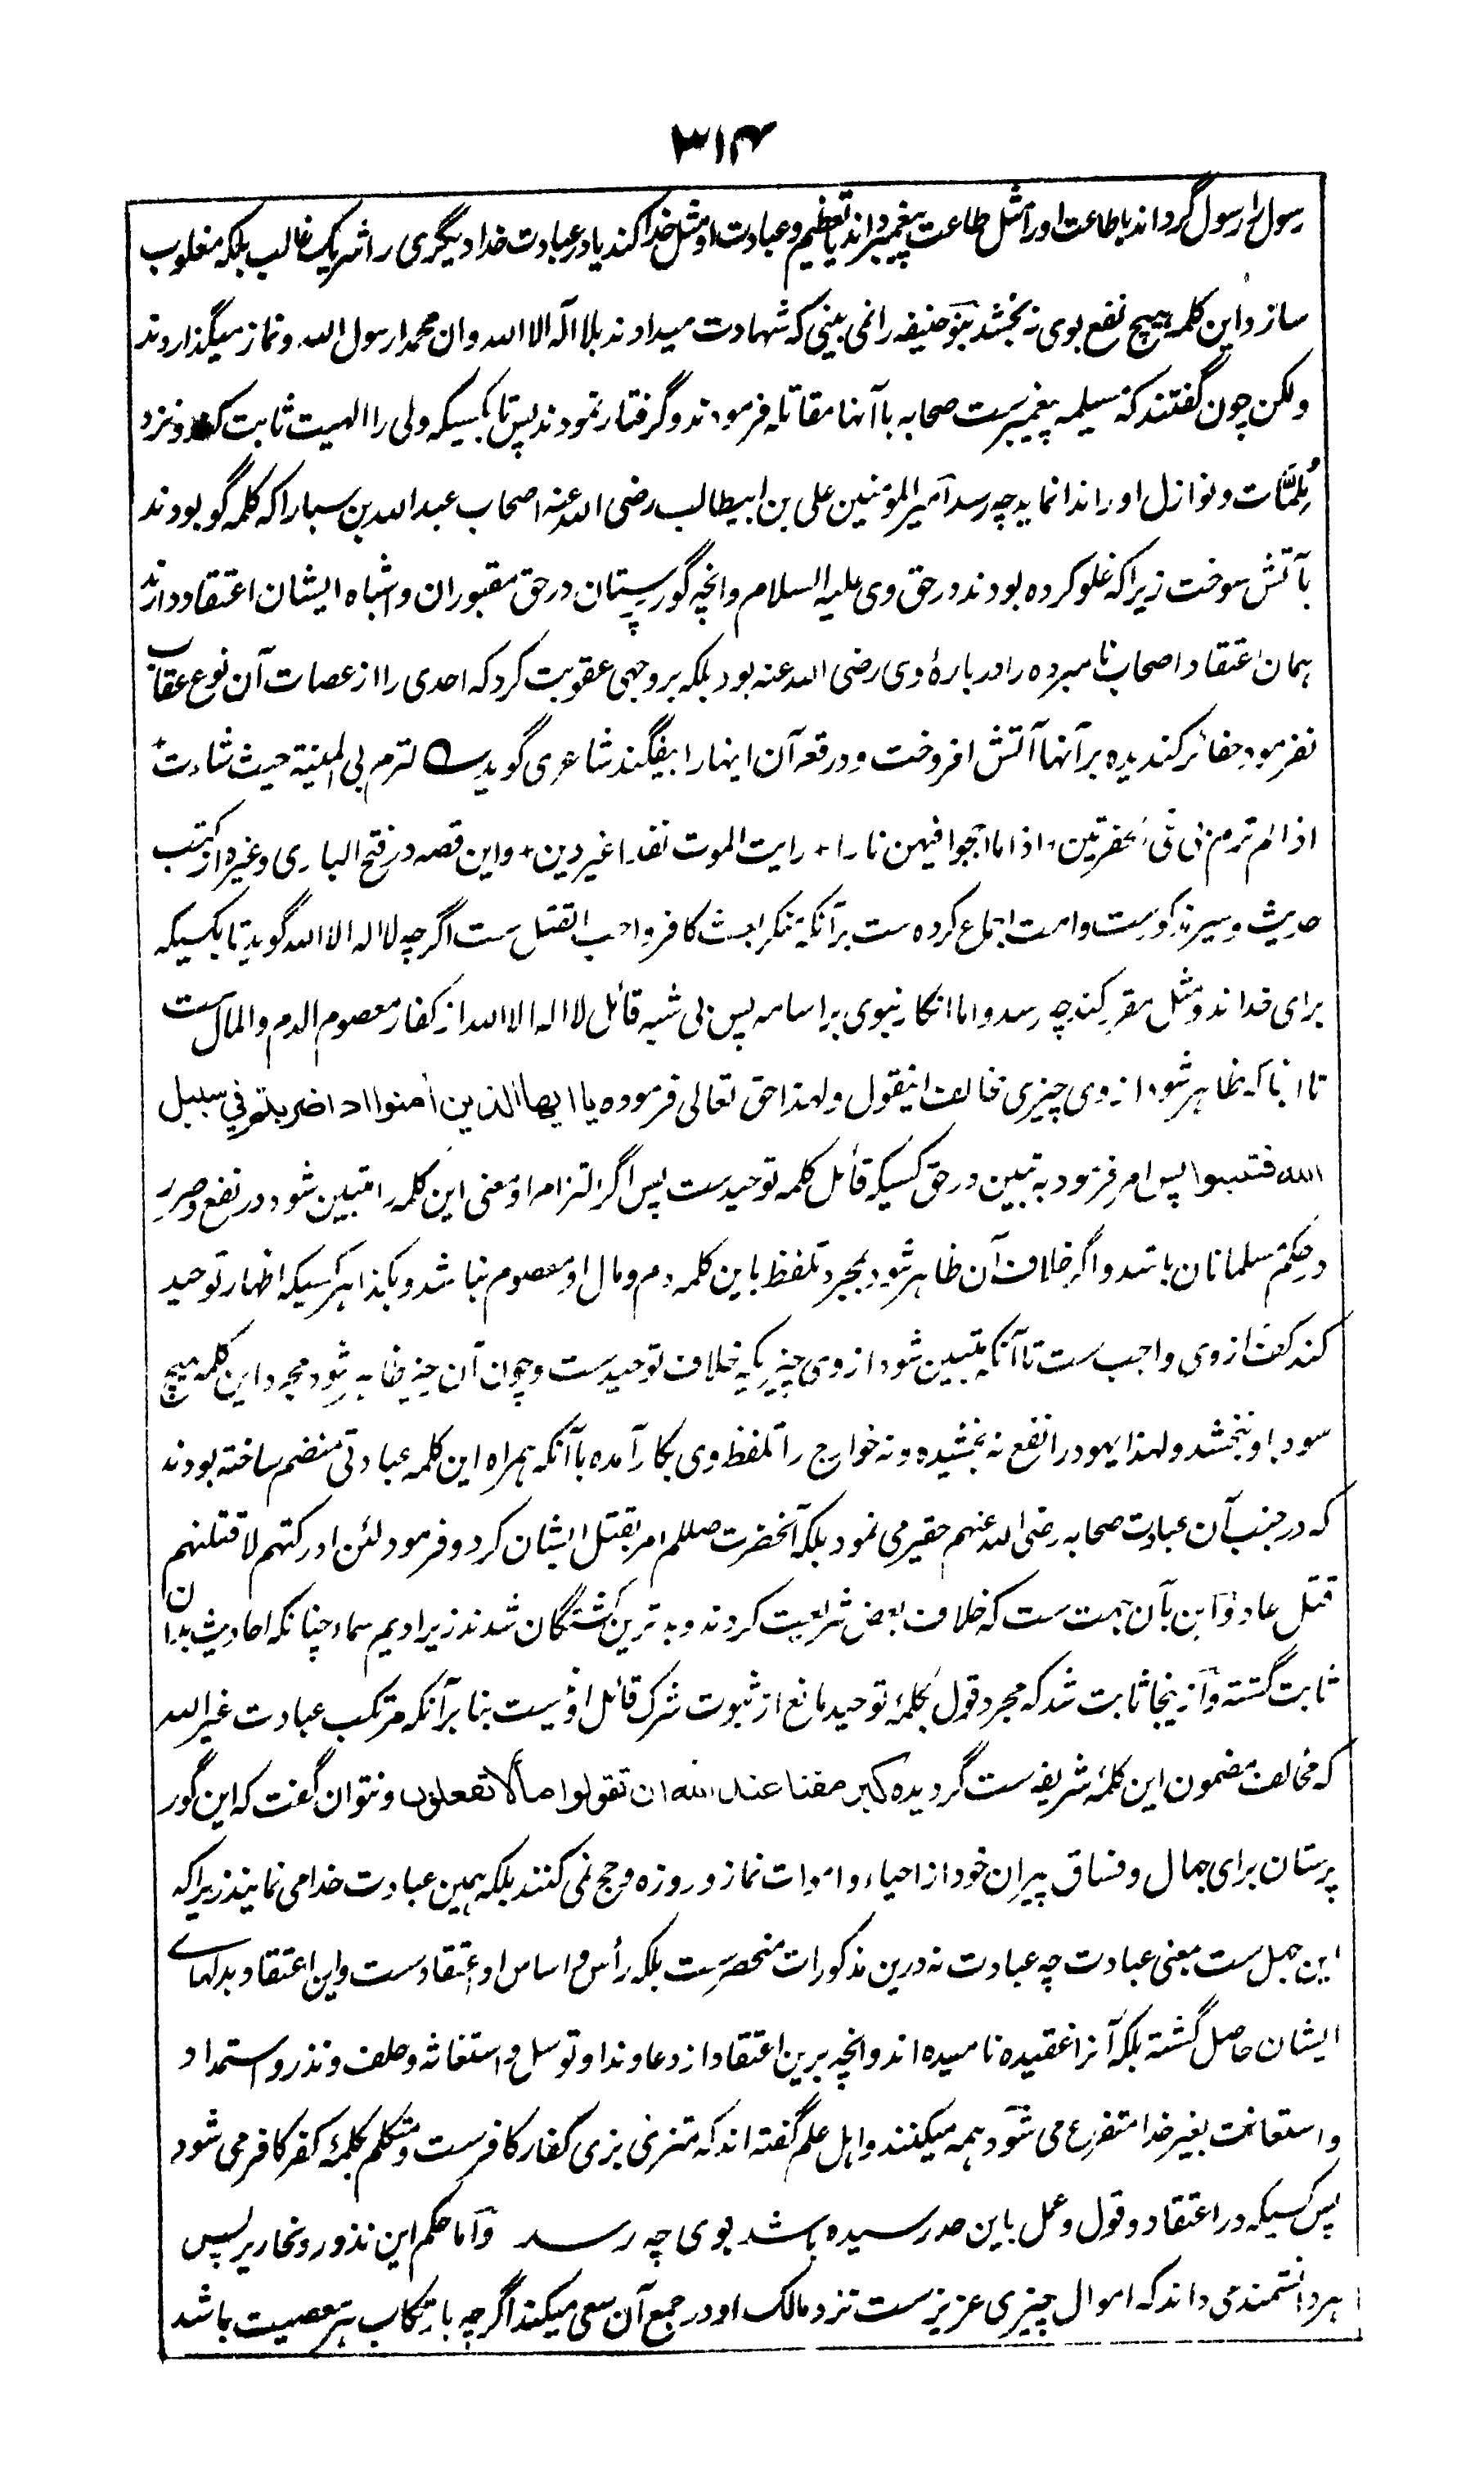 ۳۱۴
رسول را رسول گرداند یا طاعت او را مثل طاعت پیغمبر داند یا تعظیم و عبادت او مثل خدا کند یا در عبادت خدا دیگری را شریک غالب بلکه مغلوب
سازد این کلمه هیچ نفع بوی نه بخشد بنو حنیفه را نمی بینی که شهادت میدادند بلا اله الا الله و ان محمدا رسول الله و نماز میگذاردند
ولکن چون گفتند که مسیلمه پیغمبرست صحابه با آنها مقاتله فرمودند و گرفتار نمودند پس تا بکسیکه ولی را الهیت ثابت کند و نزد
مُلِمّات و نوازل او را ندا نماید چه رسد امیر المؤمنین علی بن ابیطالب رضی الله عنه اصحاب عبد الله بن سبا را که کلمه گو بودند
بآتش سوخت زیرا که غلو کرده بودند در حق وی علیه السلام و انچه گور پرستان در حق مقبوران و اشباه ایشان اعتقاد دارند
همان اعتقاد اصحاب نامبرده را درباره وی رضی الله عنه بود بلکه بر وجهی عقوبت کرد که احدی را از عصات آن نوع عقاب
نفرمود حفائر کندیده بر آنها آتش افروخت و در قعر آن اینها را بیفگند شاعری گوید ؎ لترم بی المنیة حیث شاءت
اذا لم ترم بی فی الحفرتین + اذا ما اججوا فیهن نارا + رایت الموت نقدا غیر دین + و این قصه در فتح الباری و غیره از کتب
حدیث و سیر مذکورست و امت اجماع کرده ست بر آنکه منکر بعث کافر واجب القتل ست اگرچه لا اله الا الله گوید تا بکسیکه
برای خدا ند و مثل مقرر کند چه رسد و اما انکار نبوی بر اسامه پس بی شبه قائل لا اله الا الله از کفار معصوم الدم و المال ست
تا آنکه ظاهر شود از وی چیزی مخالف اینقول و لهذا حق تعالی فرموده یا ایها الذین امنوا اذا ضربتم فی سبیل
الله فتبینوا پس امر فرمود به تبین در حق کسیکه قائل کلمه توحیدست پس اگر التزام او معنی این کلمه را متبین شود در نفع و ضرر
در حکم مسلمانان باشد و اگر خلاف آن ظاهر شود بمجرد تلفظ باین کلمه دم و مال او معصوم نباشد و بکذا هر کسیکه اظهار توحید
کند کف از وی واجب ست تا آنکه متبین شود از وی چیزیکه خلاف توحیدست و چون آن چیز ظاهر شود مجرد این کلمه هیچ
سود باو نبخشد و لهذا یهود را نفع نه بخشیده و نه خوارج را تلفظ وی بکار آمده با آنکه همراه این کلمه عبادتی منضم ساخته بودند
که در جنب آن عبادت صحابه رضی الله عنهم حقیر می نمود بلکه آنحضرت صللم امر بقتل ایشان کرد و فرمود لئن ادرکتهم لاقتلنهم
قتل عاد و این بآن جهت ست که خلاف بعض شریعت کردند و بدترین کشتگان شدند زیر ادیم سماء چنانکه احادیث بدان
ثابت گشته و از ینجا ثابت شد که مجرد قول بکلمه توحید مانع از ثبوت شرک قائل او نیست بنا بر آنکه مرتکب عبادت غیر الله
که مخالف مضمون این کلمه شریفه ست گردیده کبر مقتا عند الله ان تقولوا ما لا تفعلون و نتوان گفت که این گور
پرستان برای جهال و فساق پیران خود از احیاء و اموات نماز و روزه و حج نمی کنند بلکه همین عبادت خدا می نمایند زیرا که
این جهل ست بمعنی عبادت چه عبادت نه درین مذکورات منحصرست بلکه رأس و اساس او اعتقادست و این اعتقاد بدلهای
ایشان حاصل گشته بلکه آنرا عقیده نامیده اند و انچه برین اعتقاد از دعا و ندا و توسل و استغاثه و حلف و نذر و استمداد
و استعانت بغیر خدا متفرع می شود همه میکنند و اهل علم گفته اند که متزی بزی کفار کافرست و متکلم بکلمه کفر کافر می شود
پس کسیکه در اعتقاد و قول و عمل باین حد رسیده باشد بوی چه رسد و اما حکم این نذور و نحاریر پس
هر دانشمندی داند که اموال چیزی عزیز ست نزد مالک او در جمع آن سعی میکند اگرچه بارتکاب هر معصیت باشد